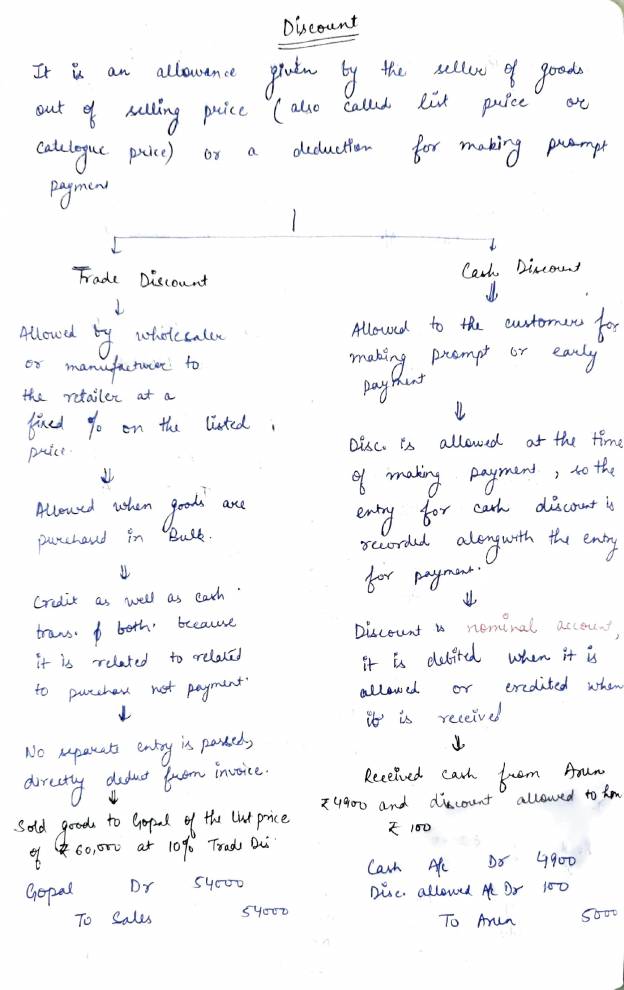 Discount
It is an allowance given by the seller of goods
out of selling price (also called list price or
Catelogue price) or a deduction for making prompt
payment
Trade Discount
Allowed by wholesaler
or manufacturer to
the retailer at a
fixed % on the listed
price.
Allowed when goods are
purchased in Bulk.
Credit as well as cash
trans. both. because
it is related to related
to purchase not payment.
No separate entry is passed,
directly deduct from invoice.
Sold goods to Gopal of the list price
of ₹ 60,000 at 10% Trade Dis.
Gopal Dr 54000
To Sales 54000
Cash Discount
Allowed to the customers for
making prompt or early
payment
Disc. is allowed at the time
of making payment, so the
entry for cash discount is
recorded alongwith the entry
for payment.
Discount is nominal account,
it is debited when it is
allowed or credited when
it is received
Received cash from Arun
₹4900 and discount allowed to him
₹ 100
Cash A/c Dr 4900
Disc. allowed A/c Dr 100
To Arun 5000